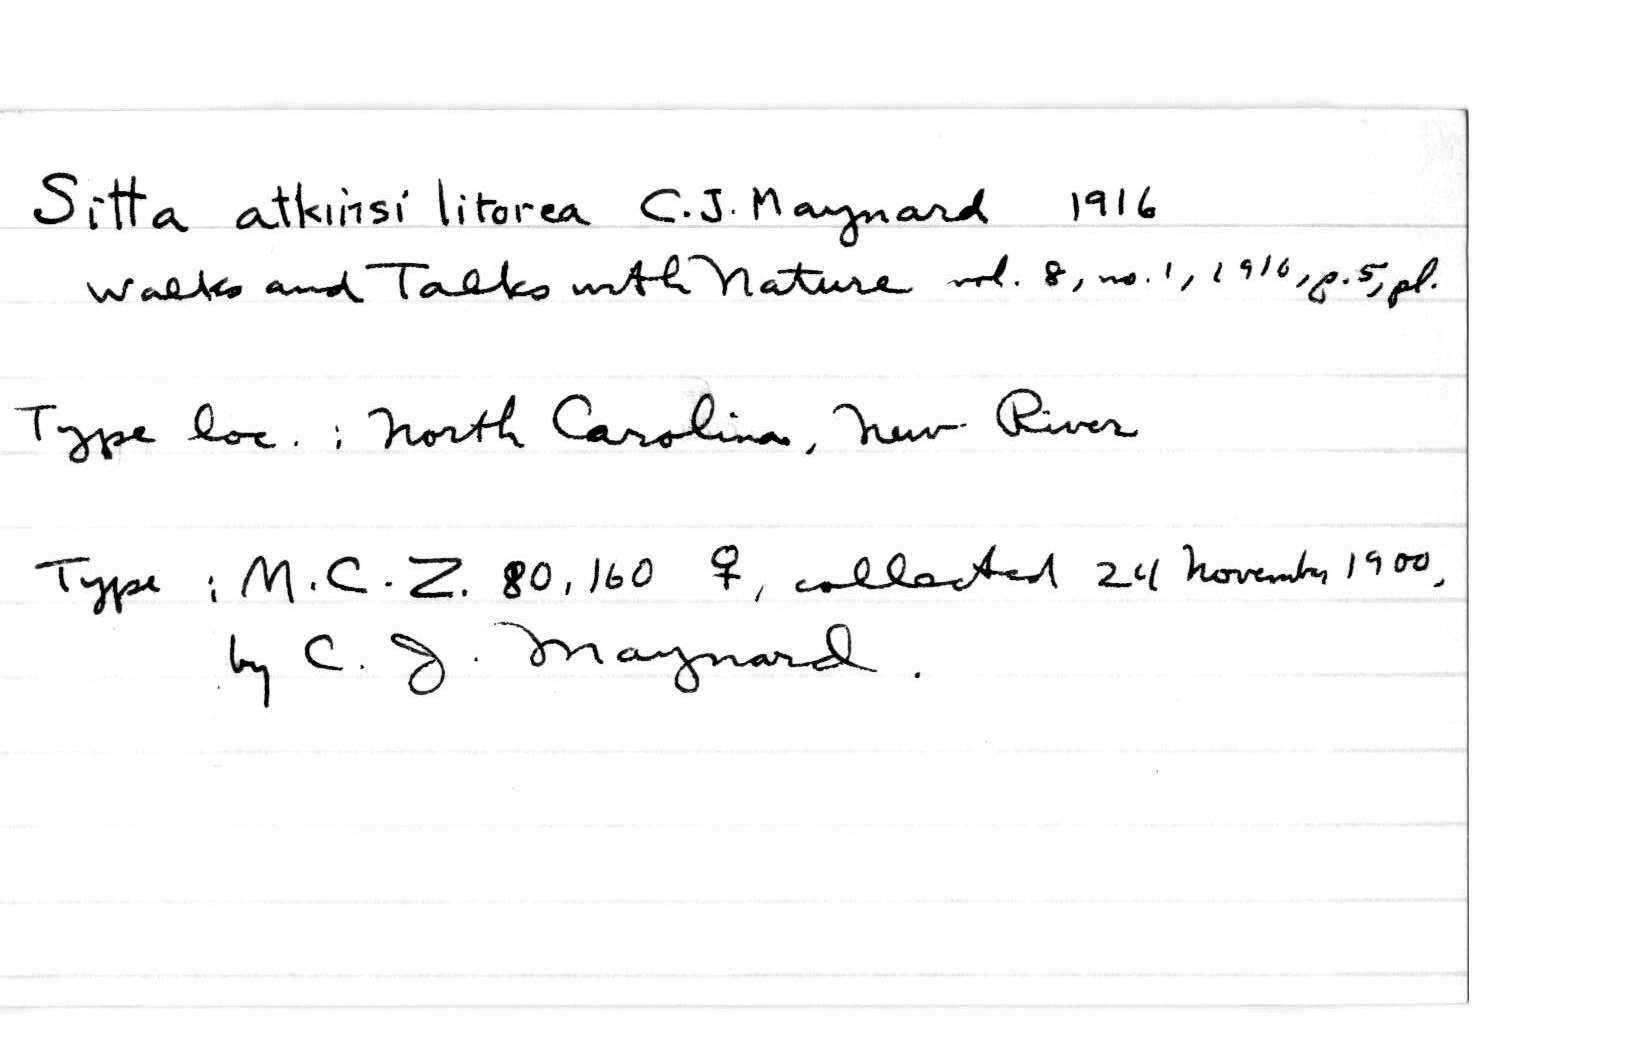 Sitta atkinsi litorea C.J. Maynard 1916
Walks and Talks with Nature vol. 8, no. 1, 1916, p. 5, pl.
Type loc. : North Carolina, New River
Type : M.C.Z. 80,160 ♀, collected 24 November 1900,
by C. J. Maynard.